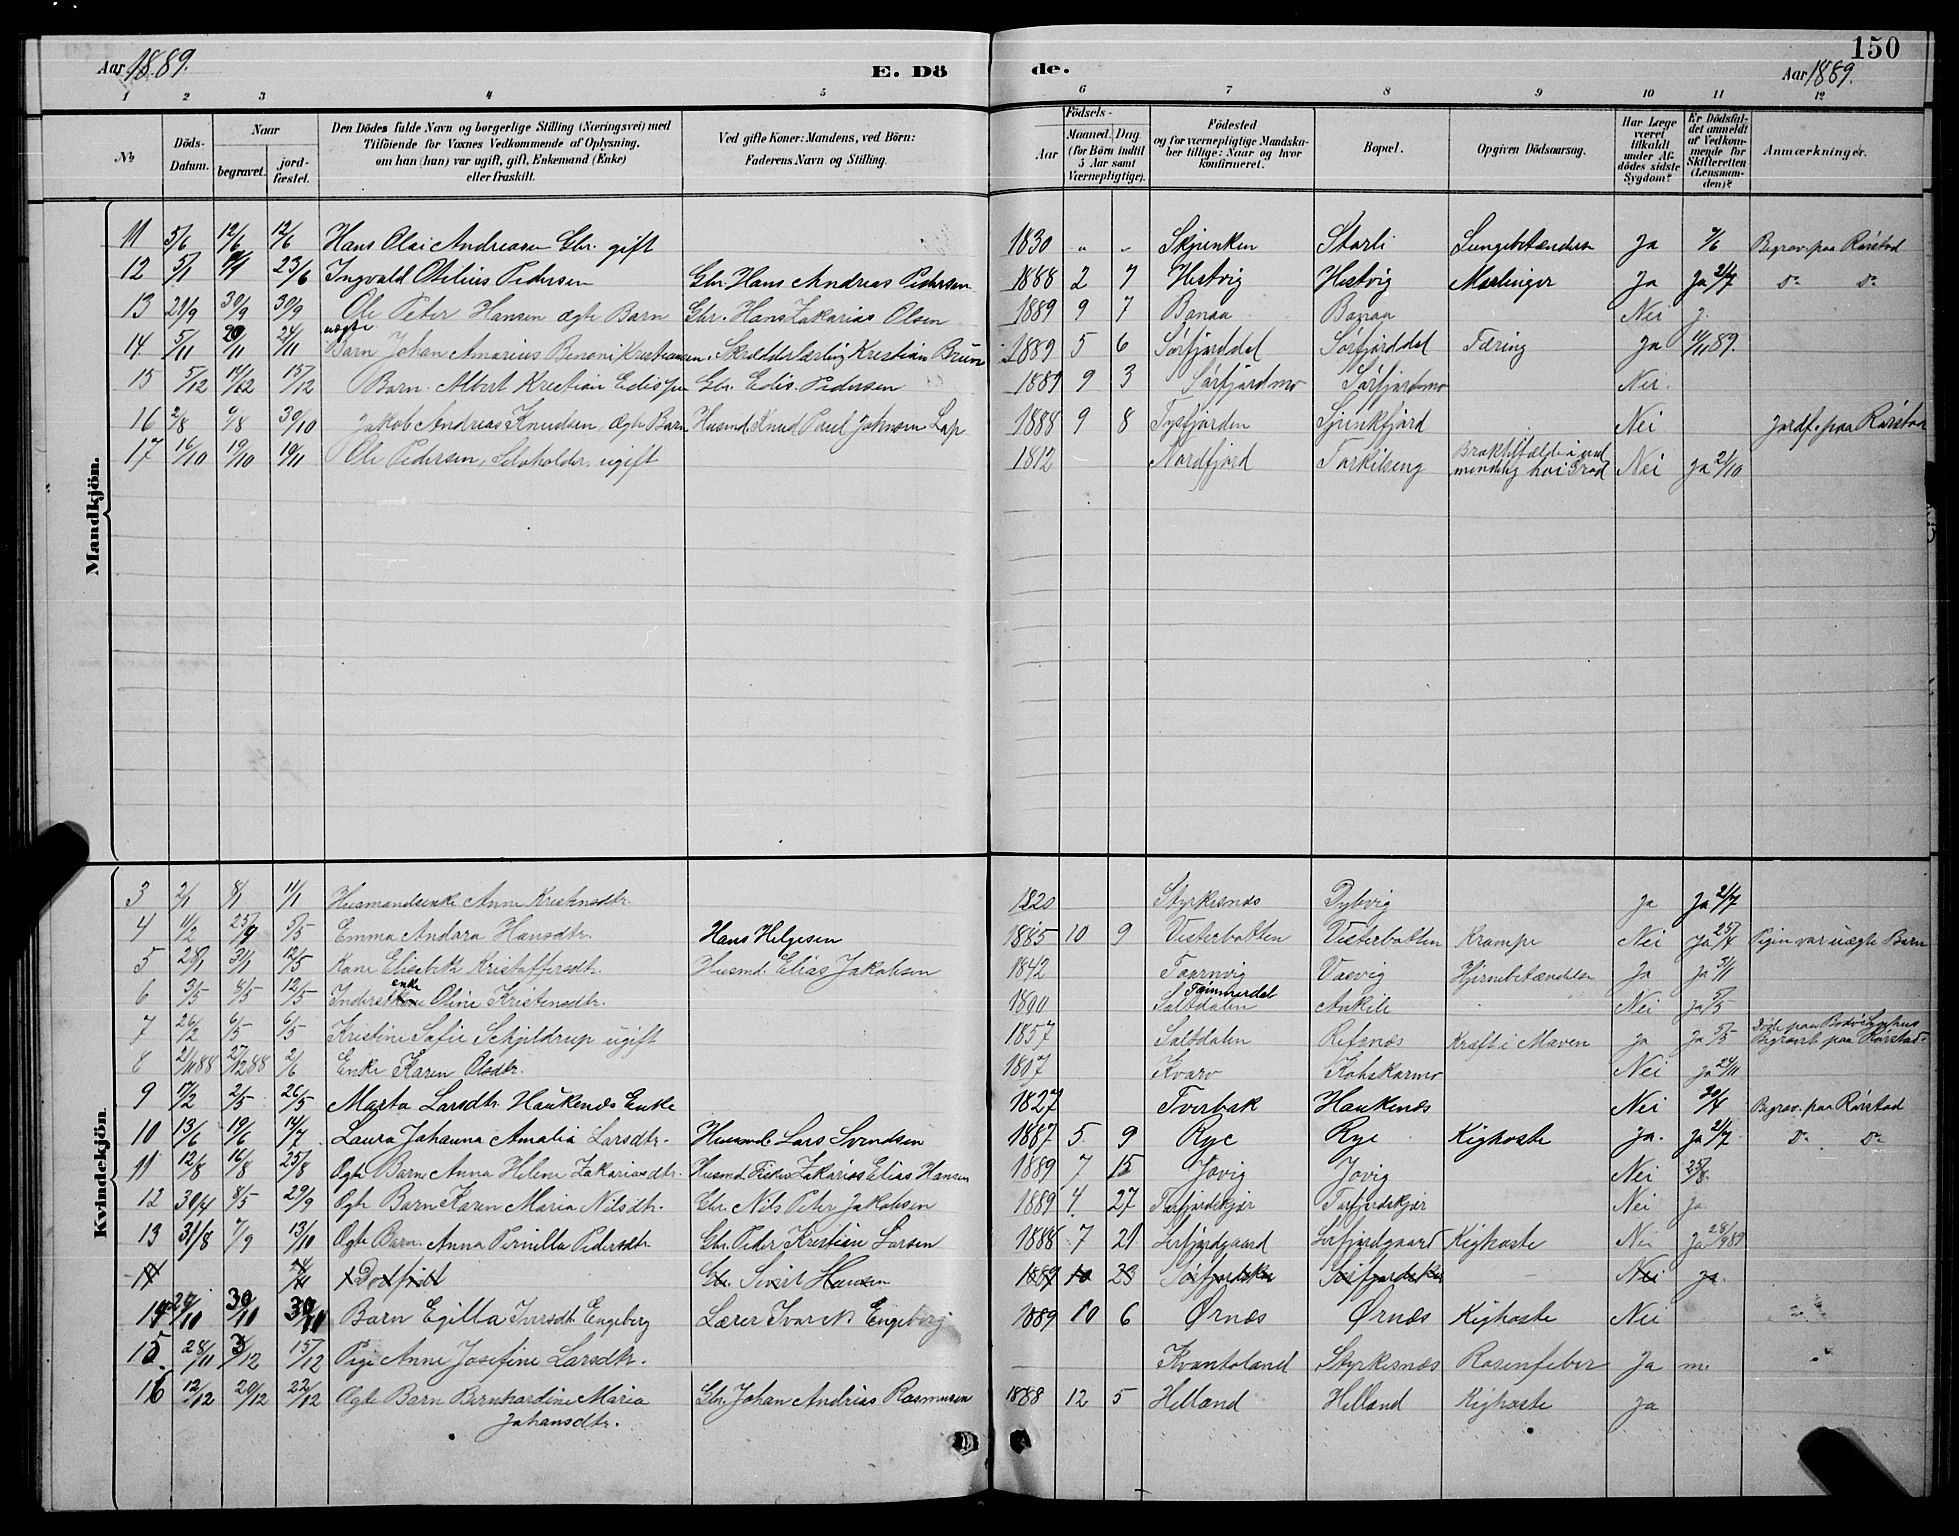 150
Aar 1889. E. Dö de. Aar 1889.
1 2 3 4 5 6 7 8 9 10 11 12
No Döds-Datum. Naar begravet. jord-fæstet. Den Dödes fulde Navn og borgerlige Stilling (Næringsvei) med Tilföiende for Voxnes Vedkommende af Oplysning, om han (hun) var ugift, gift, Enkemand (Enke) eller fraskilt. Ved gifte Koner: Mandens, ved Börn: Faderens Navn og Stilling. Födsels- Aar Maaned. Dag (for Börn indtil 5 Aar samt Værnepligtige). Födested og for værnepligtige Mandskaber tillige: Naar og hvor konfirmeret. Bopæl. Opgiven Dödsaarsag. Har Læge været tilkaldt under Afdödes sidste Sygdom? Er Dödsfaldet anmeldt af Vedkommende for Skifteretten (Lensmanden)? Anmærkninger.
Mandkjön.
11 5/6 12/6 12/6 Hans Olai Andreasen Gbr. gift 1830 " " Skjenken Storli Lungebetændelse Ja 7/6 Begrav. paa Rørstad
12 5/1 23/6 Ingvald Otelius Pedersen Gbr. Hans Andreas Pedersen 1888 2 7 Hestvig Hestvig Meslinger Ja Ja 2/7 Do Do
13 21/9 30/9 30/9 Ole Peter Hansen ægte Barn Gbr. Hans Zakarias Olsen 1889 9 7 Bonaa Bonaa Nei J.
14 5/11 20/11 24/11 uægte Barn Johan Amarius Benoni Kristiansen. Skrædderlærling Kristian Bruun 1889 5 6 Sørfjorddal Sørfjorddal Tæring Ja 11/11 89.
15 5/12 14/12 15/12 Barn. Albert Kristian Edissen Gbr. Edis. Pedersen 1889 9 3 Sørfjordmo Sørfjordmo Nei.
16 2/8 9/8 30/10 Jakob Andreas Knudsen, ægte Barn Husmd. Knud Paul Johnsen Lap 1888 9 8 Tysfjorden Sjunkfjord Nei Jordf. paa Rørstad
17 16/10 19/10 19/11 Ole Pedersen, Selvholder, ugift 1812 Nordfjord Torkilseng Braktilfælde i Nei Ja 21/10
Kvindekjön
3 2/1 8/1 11/1 Husmandsenke Anne Kristensdtr. 1820 Styrkesnes Dybvig Ja Ja 2/7
4 11/2 5/5 Emma Andora Hansdtr. Hans Helgesen 1885 10 9 Vesterbotten Vesterbotten Krampe Nei Ja 25/4 Pigen var uægte Barn
5 28/1 31/1 12/5 Kone Elisabeth Kristoffersdtr. Husmd. Elias Jakobsen 1842 Taarnvig Vasvig Hjernebetændelse Ja Ja 3/1
6 3/5 8/5 12/5 Inderstkone enke Oline Kristensdtr. 1800 Saltdalen Ankile Nei Ja 5/5
7 26/2 6/5 6/5 Kristine Sofie Schjeldrup ugift 1857 Saltdalen Retsnæs Kræft i Maven Ja Ja 5/5 Døde paa Bodø Sygehus Begravet paa Rørstad.
8 2/11 88 27/12 88 2/6 Enke Karen Olsdtr. 1807 Kvarv Kohskarmo Nei Ja 24/11
9 17/2 2/5 26/5 Marta Larsdtr. Haukenes Enke 1827 Tverbak Haukenæs Nei 30/4 Begrav. paa Rørstad
10 13/6 19/6 14/7 Laura Johanna Amalia Larsdtr. Husmd. Lars Svendsen 1887 5 9 Rye Rye Kighoste Ja. Ja 2/7 Do Do
11 12/8 16/8 25/8 Ægte Barn Anna Helene Zakariasdtr. Husmd. Fisker Zakarias Elias Hansen 1889 7 15 Jovig Jovig Nei 25/8.
12 30/4 8/5 29/9 Ægte Barn Karen Maria Nilsdtr. Gbr. Nils Peter Jakobsen 1889 4. 27 Torfjordskjær Torfjordskjær Nei Ja.
13 31/8 7/9 13/10 Ægte Barn. Anna Pernilla Pedersdtr. Gbr. Peder Kristian Larsen 1888 7 21 Lerfjordgaard Lerfjordgaard Kighoste Nei Ja 28/9 89
14 Dødfødt Gbr. Sivert Hansen 1889 10 23 Nei Ja.
14 29/10 30/10 30/11 Barn Egilla Iversdtr. Engeberg Lærer Ivar N Engeberg 1889 10 6 Ørnæs Ørnæs Kighoste Nei
15 28/11 3/12 15/12 Pige Anne Josefine Larsdtr. Kvantoland Styrkesnæs Rosenfeber Ja m.
16 12/12 20/12 22/12 Ægte Barn Bernhardine Maria Johansdtr. Gbr. Johan Andreas Rasmussen 1888 12 5 Helland Helland Kighoste Ja